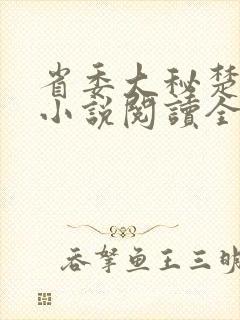 省委大秘楚
小说阅读全
吞拏鱼王三明